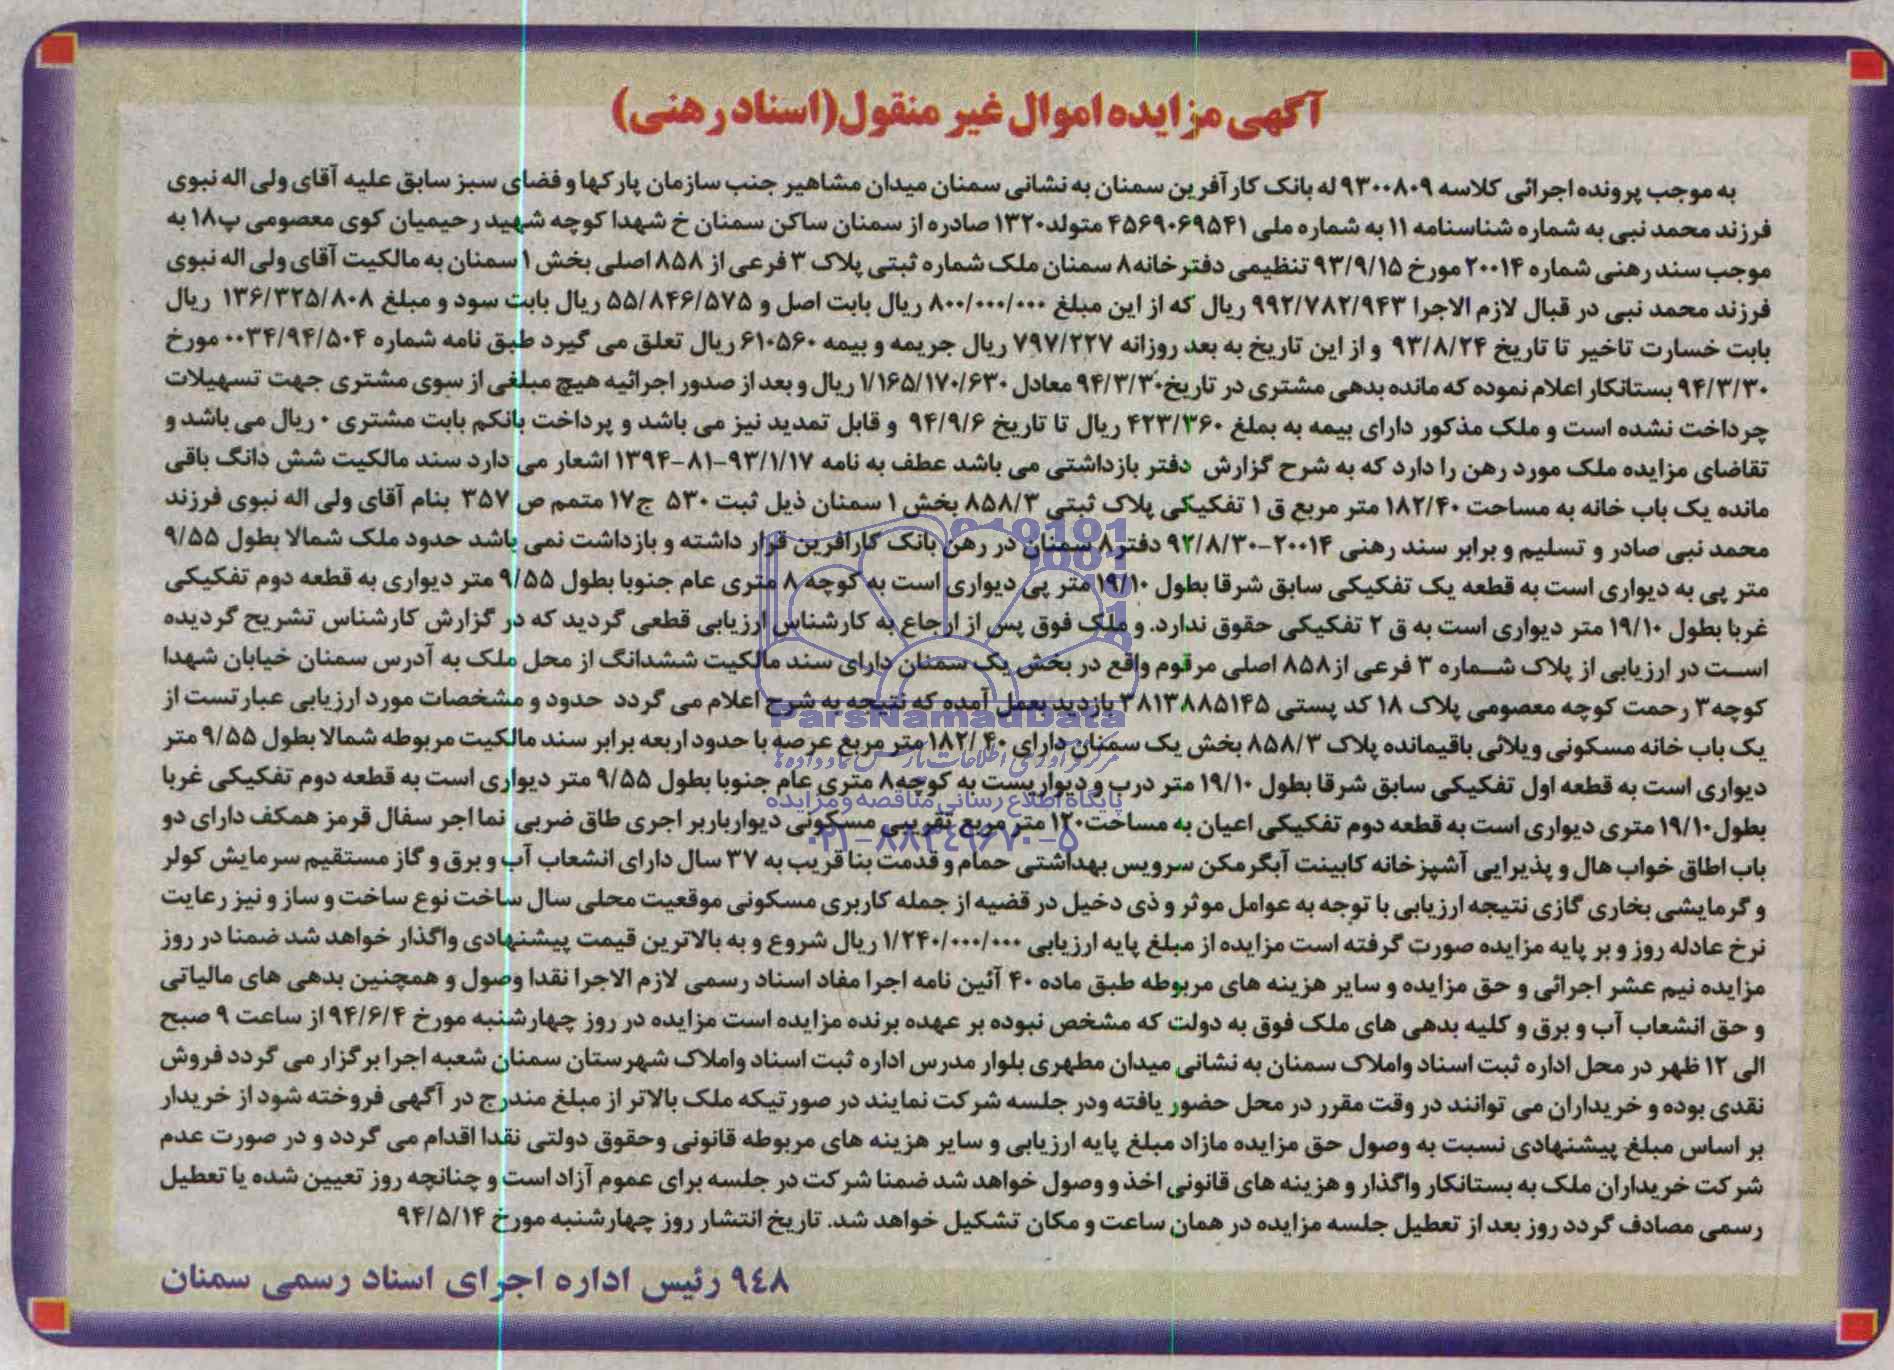 آگهی مزایده اموال غیر منقول(اسناد رهنی)
به موجب پرونده اجرائی کلاسه ۹۳۰۰۸۰۹ له بانک کارآفرین سمنان به نشانی سمنان میدان مشاهیر جنب سازمان پارکها و فضای سبز سابق علیه آقای ولی اله نبوی
فرزند محمد نبی به شماره شناسنامه ۱۱ به شماره ملی ۴۵۶۹۰۶۹۵۴۱ متولد۱۳۲۰ صادره از سمنان ساکن سمنان خ شهدا کوچه شهید رحیمیان کوی معصومی پ۱۸ به
موجب سند رهنی شماره ۲۰۰۱۴ مورخ ۹۳/۹/۱۵ تنظیمی دفترخانه۸ سمنان ملک شماره ثبتی پلاک ۳ فرعی از ۸۵۸ اصلی بخش ۱ سمنان به مالکیت آقای ولی اله نبوی
فرزند محمد نبی در قبال لازم الاجرا ۹۹۲/۷۸۲/۹۴۳ ریال که از این مبلغ ۸۰۰/۰۰۰/۰۰۰ ریال بابت اصل و ۵۵/۸۴۶/۵۷۵ ریال بابت سود و مبلغ ۱۳۶/۳۲۵/۸۰۸ ریال
بابت خسارت تاخیر تا تاریخ ۹۳/۸/۲۴ و از این تاریخ به بعد روزانه ۷۹۷/۲۲۷ ریال جریمه و بیمه ۶۱۰۵۶۰ ریال تعلق می گیرد طبق نامه شماره ۰۰۳۴/۹۴/۵۰۴ مورخ
۹۴/۳/۳۰ بستانکار اعلام نموده که مانده بدهی مشتری در تاریخ۹۴/۳/۳۰ معادل ۱/۱۶۵/۱۷۰/۶۳۰ ریال و بعد از صدور اجرائیه هیچ مبلغی از سوی مشتری جهت تسهیلات
چرداخت نشده است و ملک مذکور دارای بیمه به بملغ ۴۲۳/۳۶۰ ریال تا تاریخ ۹۴/۹/۶ و قابل تمدید نیز می باشد و پرداخت بانکم بابت مشتری ۰ ریال می باشد و
تقاضای مزایده ملک مورد رهن را دارد که به شرح گزارش دفتر بازداشتی می باشد عطف به نامه ۹۳/۱/۱۷-۸۱-۱۳۹۴ اشعار می دارد سند مالکیت شش دانگ باقی
مانده یک باب خانه به مساحت ۱۸۲/۴۰ متر مربع ق ۱ تفکیکی پلاک ثبتی ۸۵۸/۳ بخش ۱ سمنان ذیل ثبت ۵۳۰ ج۱۷ متمم ص ۳۵۷ بنام آقای ولی اله نبوی فرزند
محمد نبی صادر و تسلیم و برابر سند رهنی ۲۰۰۱۴-۹۲/۸/۳۰ دفتر۸ سمنان در رهن بانک کارافرین قرار داشته و بازداشت نمی باشد حدود ملک شمالا بطول ۹/۵۵
متر پی به دیواری است به قطعه یک تفکیکی سابق شرقا بطول ۱۹/۱۰ متر پی دیواری است به کوچه ۸ متری عام جنوبا بطول ۹/۵۵ متر دیواری به قطعه دوم تفکیکی
غربا بطول ۱۹/۱۰ متر دیواری است به ق ۲ تفکیکی حقوق ندارد. و ملک فوق پس از ارجاع به کارشناس ارزیابی قطعی گردید که در گزارش کارشناس تشریح گردیده
است در ارزیابی از پلاک شماره ۳ فرعی از۸۵۸ اصلی مرقوم واقع در بخش یک سمنان دارای سند مالکیت ششدانگ از محل ملک به آدرس سمنان خیابان شهدا
کوچه۳ رحمت کوچه معصومی پلاک ۱۸ کد پستی ۳۸۱۳۸۸۵۱۴۵ بازدید بعمل آمده که نتیجه به شرح اعلام می گردد حدود و مشخصات مورد ارزیابی عبارتست از
ParsNamadData
یک باب خانه مسکونی ویلائی باقیمانده پلاک ۸۵۸/۳ بخش یک سمنان دارای ۱۸۲/۴۰ متر مربع عرصه با حدود اربعه برابر سند مالکیت مربوطه شمالا بطول ۹/۵۵ متر
دیواری است به قطعه اول تفکیکی سابق شرقا بطول ۱۹/۱۰ متر درب و دیواریست به کوچه۸ متری عام جنوبا بطول ۹/۵۵ متر دیواری است به قطعه دوم تفکیکی غربا
پایگاه اطلاع رسانی مناقصه و مزایده
بطول۱۹/۱۰ متری دیواری است به قطعه دوم تفکیکی اعیان به مساحت۱۲۰ متر مربع تقریبی مسکونی دیوارباربر اجری طاق ضربی نما اجر سفال قرمز همکف دارای دو
۰۲۱-۸۸۳۴۹۶۷۰-۵
باب اطاق خواب هال و پذیرایی آشپزخانه کابینت آبگرمکن سرویس بهداشتی حمام و قدمت بنا قریب به ۳۷ سال دارای انشعاب آب و برق و گاز مستقیم سرمایش کولر
و گرمایشی بخاری گازی نتیجه ارزیابی با توجه به عوامل موثر و ذی دخیل در قضیه از جمله کاربری مسکونی موقعیت محلی سال ساخت نوع ساخت و ساز و نیز رعایت
نرخ عادله روز و بر پایه مزایده صورت گرفته است مزایده از مبلغ پایه ارزیابی ۱/۲۴۰/۰۰۰/۰۰۰ ریال شروع و به بالاترین قیمت پیشنهادی واگذار خواهد شد ضمنا در روز
مزایده نیم عشر اجرائی و حق مزایده و سایر هزینه های مربوطه طبق ماده ۴۰ آئین نامه اجرا مفاد اسناد رسمی لازم الاجرا نقدا وصول و همچنین بدهی های مالیاتی
و حق انشعاب آب و برق و کلیه بدهی های ملک فوق به دولت که مشخص نبوده بر عهده برنده مزایده است مزایده در روز چهارشنبه مورخ ۹۴/۶/۴ از ساعت ۹ صبح
الی ۱۲ ظهر در محل اداره ثبت اسناد واملاک سمنان به نشانی میدان مطهری بلوار مدرس اداره ثبت اسناد واملاک شهرستان سمنان شعبه اجرا برگزار می گردد فروش
نقدی بوده و خریداران می توانند در وقت مقرر در محل حضور یافته ودر جلسه شرکت نمایند در صورتیکه ملک بالاتر از مبلغ مندرج در آگهی فروخته شود از خریدار
بر اساس مبلغ پیشنهادی نسبت به وصول حق مزایده مازاد مبلغ پایه ارزیابی و سایر هزینه های مربوطه قانونی وحقوق دولتی نقدا اقدام می گردد و در صورت عدم
شرکت خریداران ملک به بستانکار واگذار و هزینه های قانونی اخذ و وصول خواهد شد ضمنا شرکت در جلسه برای عموم آزاد است و چنانچه روز تعیین شده یا تعطیل
رسمی مصادف گردد روز بعد از تعطیل جلسه مزایده در همان ساعت و مکان تشکیل خواهد شد. تاریخ انتشار روز چهارشنبه مورخ ۹۴/۵/۱۴
۹۴۸ رئیس اداره اجرای اسناد رسمی سمنان